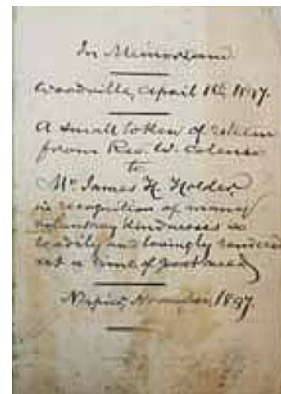 In Memoriam
Woodville, April 1st, 1897.
A small token of esteem
from Rev. W. Colenso
to
Mr James H. Holder,
in recognition of many
voluntary kindnesses so
readily and lovingly rendered
at a time of great need
Napier, November, 1897.